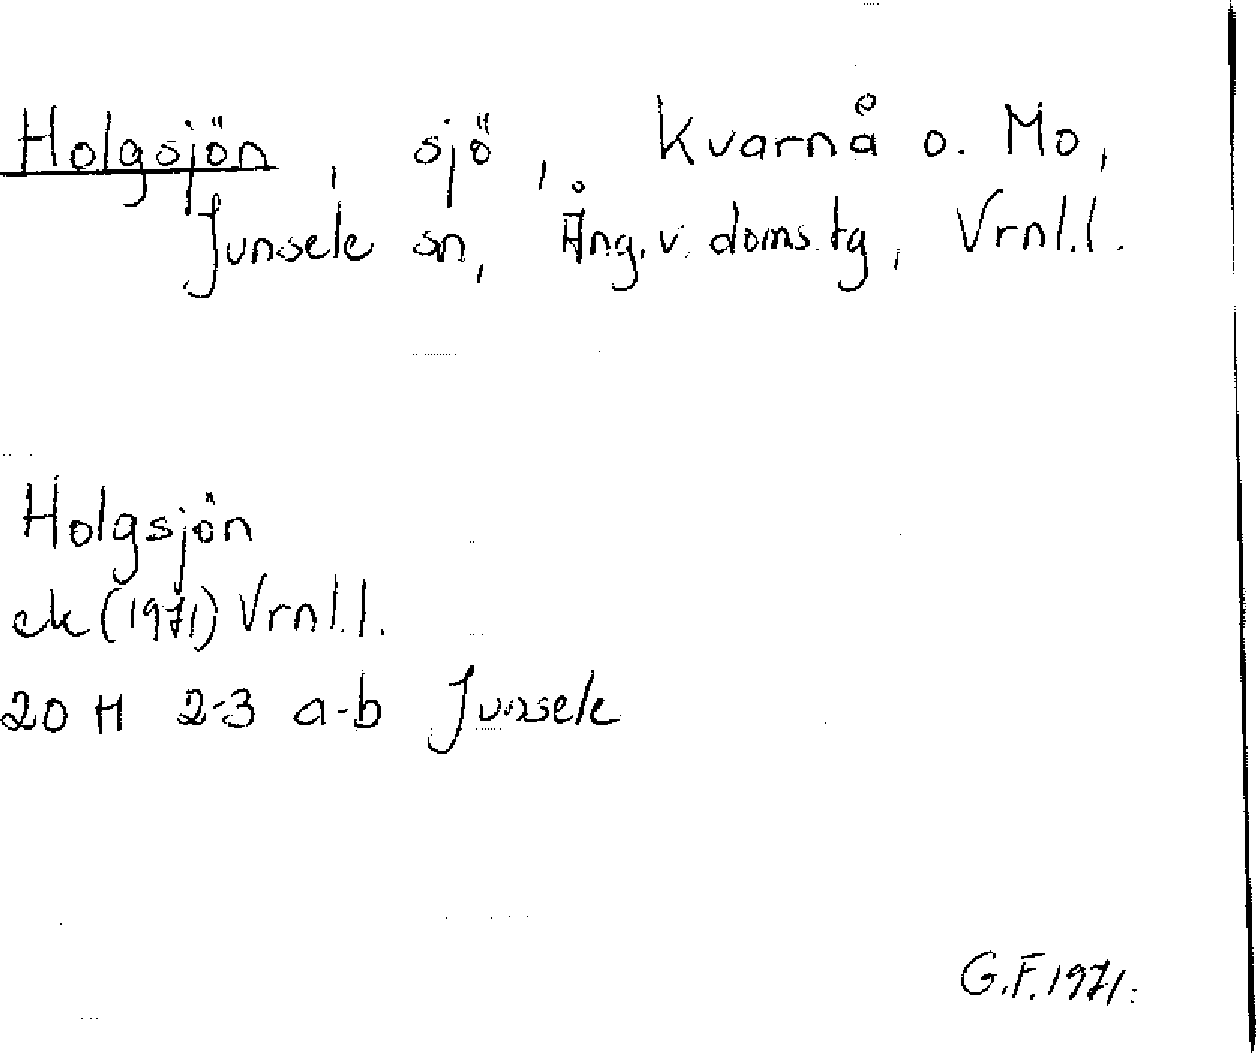 Holgsjön, sjö, Kvarnå o. Mo,
Junsele sn, Ång. v. doms.tg, Vrnl.l.
Holgsjön
ek (1971) Vrnl.l.
20 H 2-3 a-b Junsele
G.F. 1971.